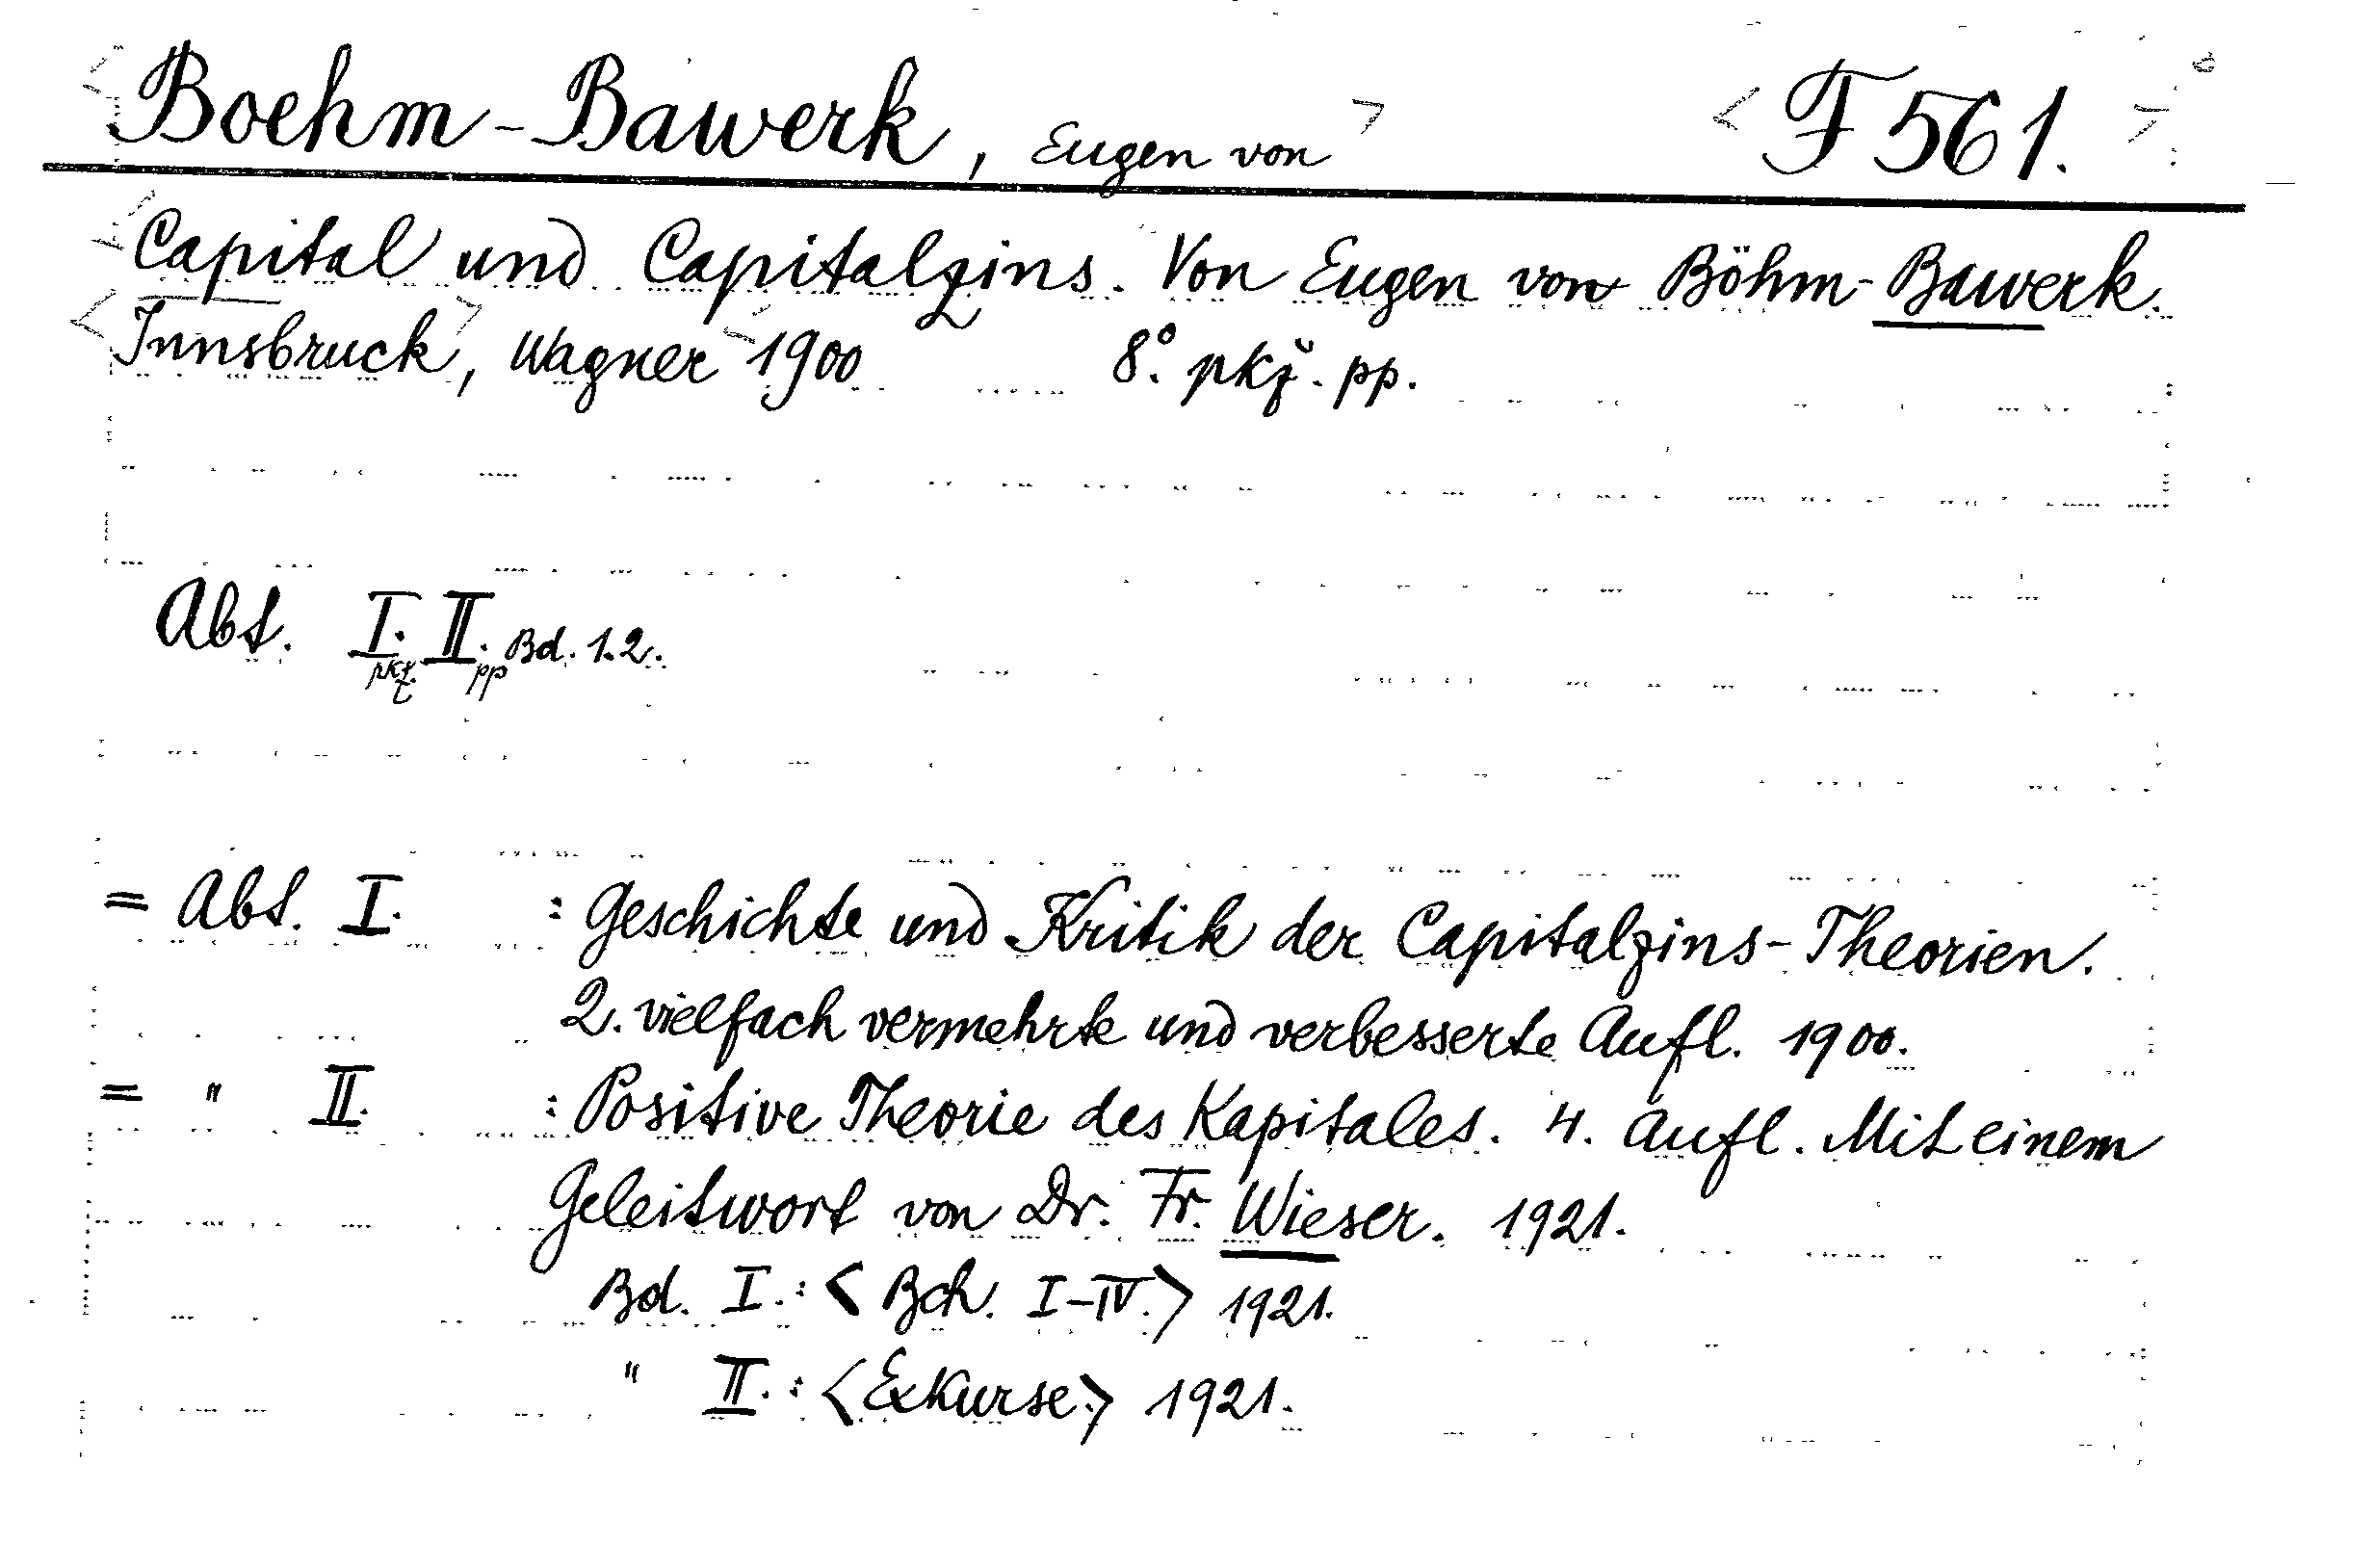 Boehm-Bawerk, Eugen von F 561.
Capital und Capitalzins. Von Eugen von Böhm-Bawerk.
Innsbruck, Wagner 1900 8° pkž. pp.
Abt. I. II. Bd. 1.2.
pkž. pp
= Abt. I. : Geschichte und Kritik der Capitalzins-Theorien.
2. vielfach vermehrte und verbesserte Aufl. 1900.
= " II. : Positive Theorie des Kapitales. 4. Aufl. Mit einem
Geleitwort von Dr. Fr. Wieser. 1921.
Bd. I.: <Bch. I-IV.> 1921.
" II.: <Exkurse.> 1921.